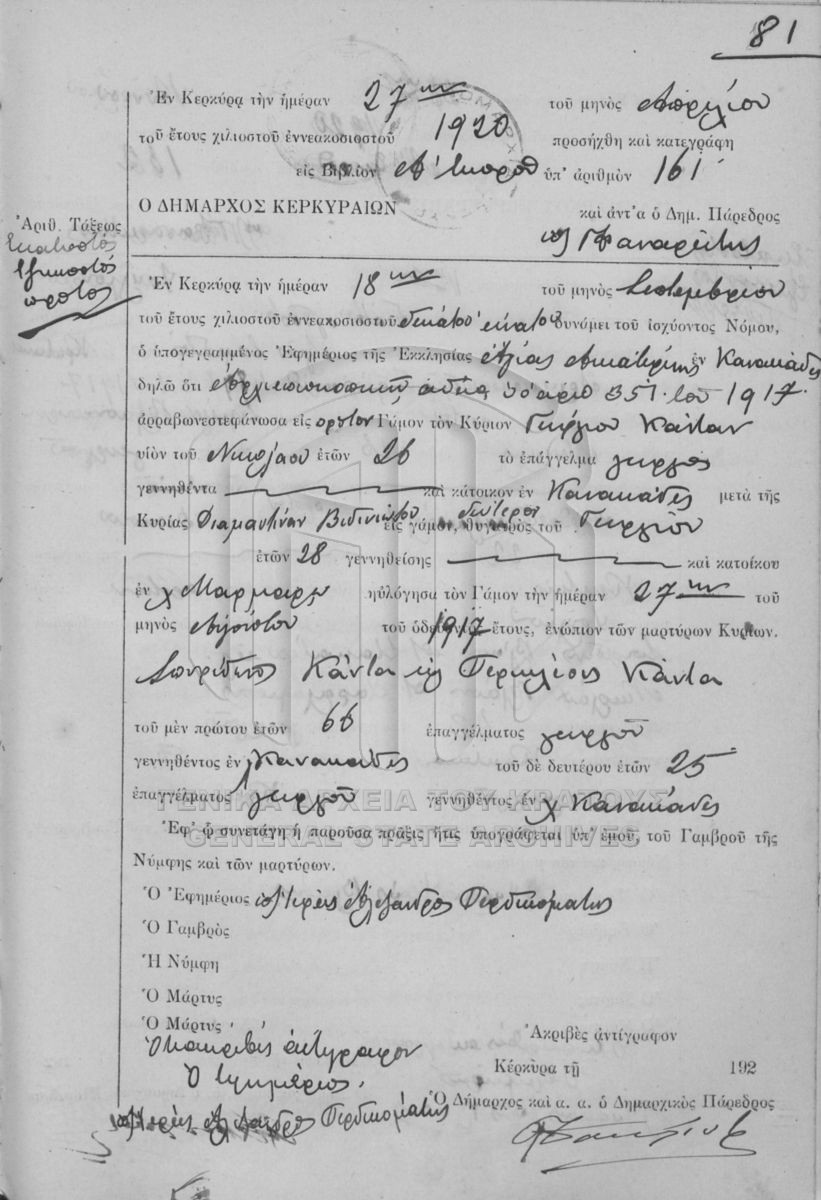 81
Ἐν Κερκύρᾳ τὴν ἡμέραν 27ην τοῦ μηνὸς Ἀπριλίου
τοῦ ἔτους χιλιοστοῦ ἐννεακοσιοστοῦ 1920 προσήχθη καὶ κατεγράφη
εἰς Βιβλίον Α' ὑπ' ἀριθμὸν 161
Ο ΔΗΜΑΡΧΟΣ ΚΕΡΚΥΡΑΙΩΝ καὶ ἀντ'α ὁ Δημ. Πάρεδρος
Ἀριθ. Τάξεως
Ἑκατοστός
ἑξηκοστός
πρῶτος
Ἐν Κερκύρᾳ τὴν ἡμέραν 18ην τοῦ μηνὸς Σεπτεμβρίου
τοῦ ἔτους χιλιοστοῦ ἐννεακοσιοστοῦ δεκάτου ἐνάτου δυνάμει τοῦ ἰσχύοντος Νόμου,
ὁ ὑπογεγραμμένος Ἐφημέριος τῆς Ἐκκλησίας Ἁγίας Αἰκατερίνης ἐν Κανακάδες
δηλῶ ὅτι Ἀρχιεπισκοπικῇ ἀδείᾳ ὑπ' ἀριθ 351 τοῦ 1917
ἀρραβωνεστεφάνωσα εἰς πρῶτον Γάμον τὸν Κύριον Γεώργιον Κάνταν
υἱὸν τοῦ Νικολάου ἐτῶν 26 τὸ ἐπάγγελμα γεωργὸς
γεννηθέντα καὶ κάτοικον ἐν Κανακάδες μετὰ τῆς
Κυρίας Διαμαντίναν εἰς γάμον δεύτερον θυγατρὸς τοῦ Γεωργίου
ἐτῶν 28 γεννηθείσης καὶ κατοίκου
ἐν χ Μάρμαρο ηὐλόγησα τὸν Γάμον τὴν ἡμέραν 27ην τοῦ
μηνὸς Αὐγούστου τοῦ 1917 ἔτους, ἐνώπιον τῶν μαρτύρων Κυρίων.
Σπυρίδωνος Κάντα καὶ Περικλέους Κάντα
τοῦ μὲν πρώτου ἐτῶν 66 ἐπαγγέλματος γεωργοῦ
γεννηθέντος ἐν χ Κανακάδες τοῦ δὲ δευτέρου ἐτῶν 25
ἐπαγγέλματος γεωργοῦ γεννηθέντος ἐν χ Κανακάδες
ΓΕΝΙΚΑ ΑΡΧΕΙΑ ΤΟΥ ΚΡΑΤΟΥΣ
GENERAL STATE ARCHIVES
Ἐφ' ᾧ συνετάγη ἡ παροῦσα πρᾶξις ἥτις ὑπογράφεται ὑπ' ἐμοῦ, τοῦ Γαμβροῦ τῆς
Νύμφης καὶ τῶν μαρτύρων.
Ὁ Ἐφημέριος Ἱερεὺς Ἀλέξανδρος Περδικομάτης
Ὁ Γαμβρὸς
Ἡ Νύμφη
Ὁ Μάρτυς
Ὁ Μάρτυς
Ἀκριβὲς ἀντίγραφον
Ὁ ἐφημέριος
Ἱερεὺς Ἀλέξανδρος Περδικομάτης
Ἀκριβὲς ἀντίγραφον
Κέρκυρα τῇ 192
Ὁ Δήμαρχος καὶ α. α. ὁ Δημαρχικὸς Πάρεδρος